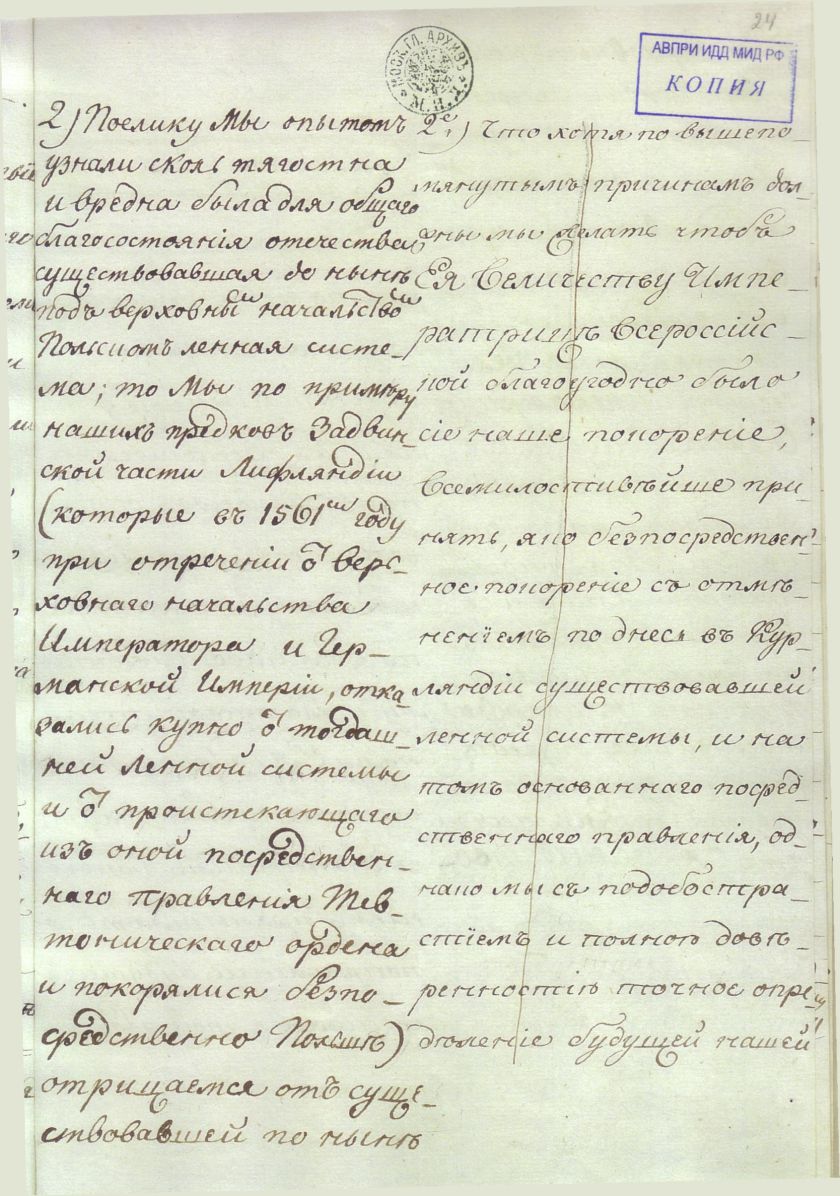 24
МОСК. ГЛ. АРХИВЪ
М. И. Д.
АВПРИ ИДД МИД РФ
КОПИЯ
2) Поелику Мы опытомъ
узнали сколь тягостна
и вредна была для общаго
благосостоянія отечества
существовавшая до нынѣ
подъ верховнымъ начальствомъ
Польскомъ ленная систе-
ма; то Мы по примѣру
нашихъ предковъ Задвин-
ской части Лифляндіи
(которые въ 1561мъ году
при отреченіи отъ верь-
ховнаго начальства
Императора и Гер-
манской Имперіи, отка-
зались купно отъ тогдаш-
ней Ленной системы
и отъ проистекающаго
изъ оной посредствен-
наго правленія Тев-
тоническаго ордена
и покорялися безпо-
средственно Польшѣ)
отрицаемся отъ суще-
ствовавшей по нынѣ
2е) Что хотя по вышепо-
мянутымъ причинамъ дол-
жны мы желать чтобъ
Ея Величеству Импе-
ратрицѣ Всероссійс-
кой благоугодно было
сіе наше покореніе,
Всемилостивѣйше при-
нять, яко безпосредствен-
ное покореніе съ отмѣ-
неніемъ по днесь въ Кур-
ляндіи существовавшей
ленной системы, и на
томъ основаннаго посред-
ственнаго правленія, од-
нако мы съ подобостра-
стіемъ и полною довѣ-
ренностію точное опре-
дѣленіе будущей нашей